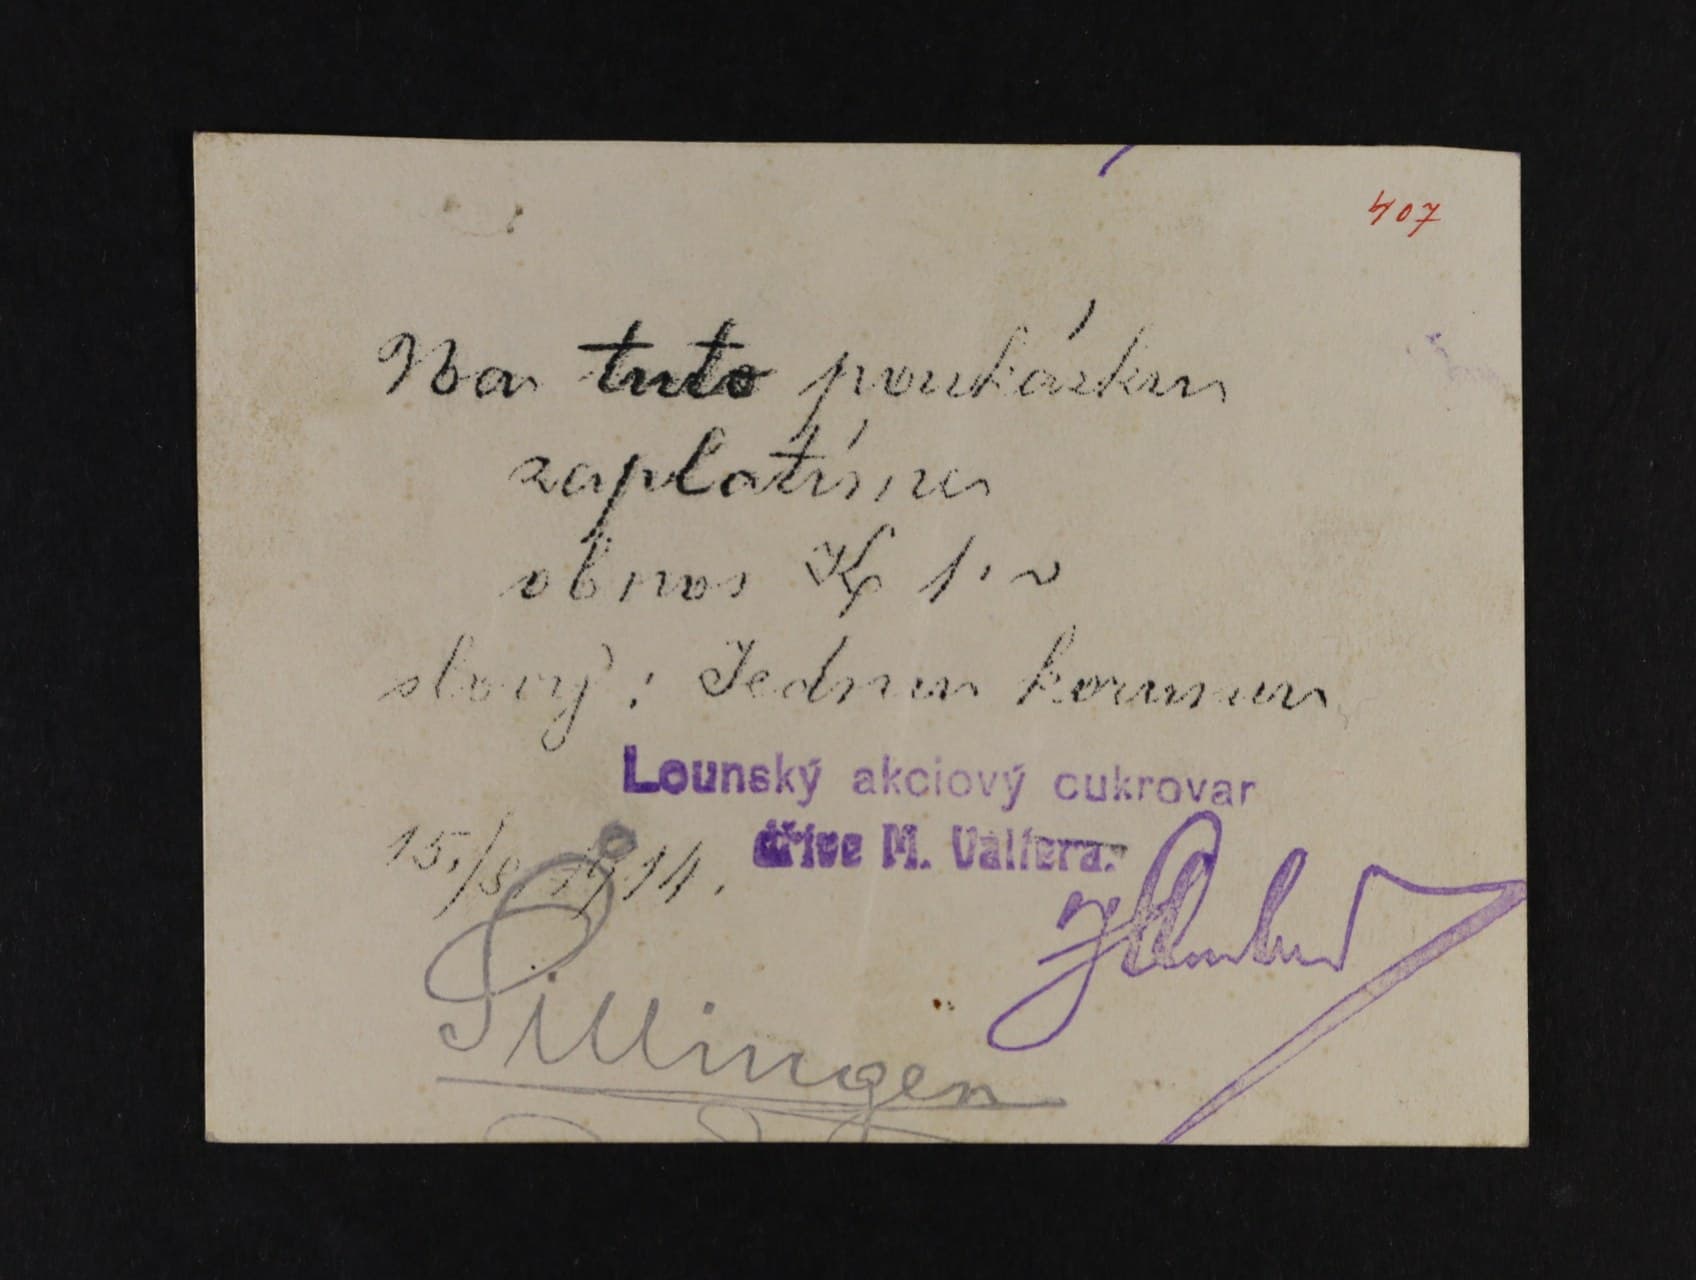 407
Na tuto poukázku
zaplatíme
obnos K 1·
slovy: Jednu korunu
Lounský akciový cukrovar
dříve M. Valtera.
15./8. 1914.
Pillingen